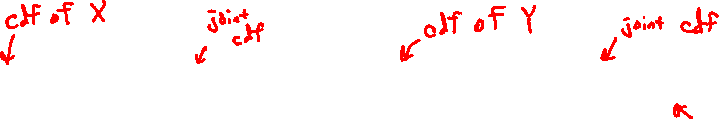 cdf of X
joint
cdf
cdf of Y
joint cdf